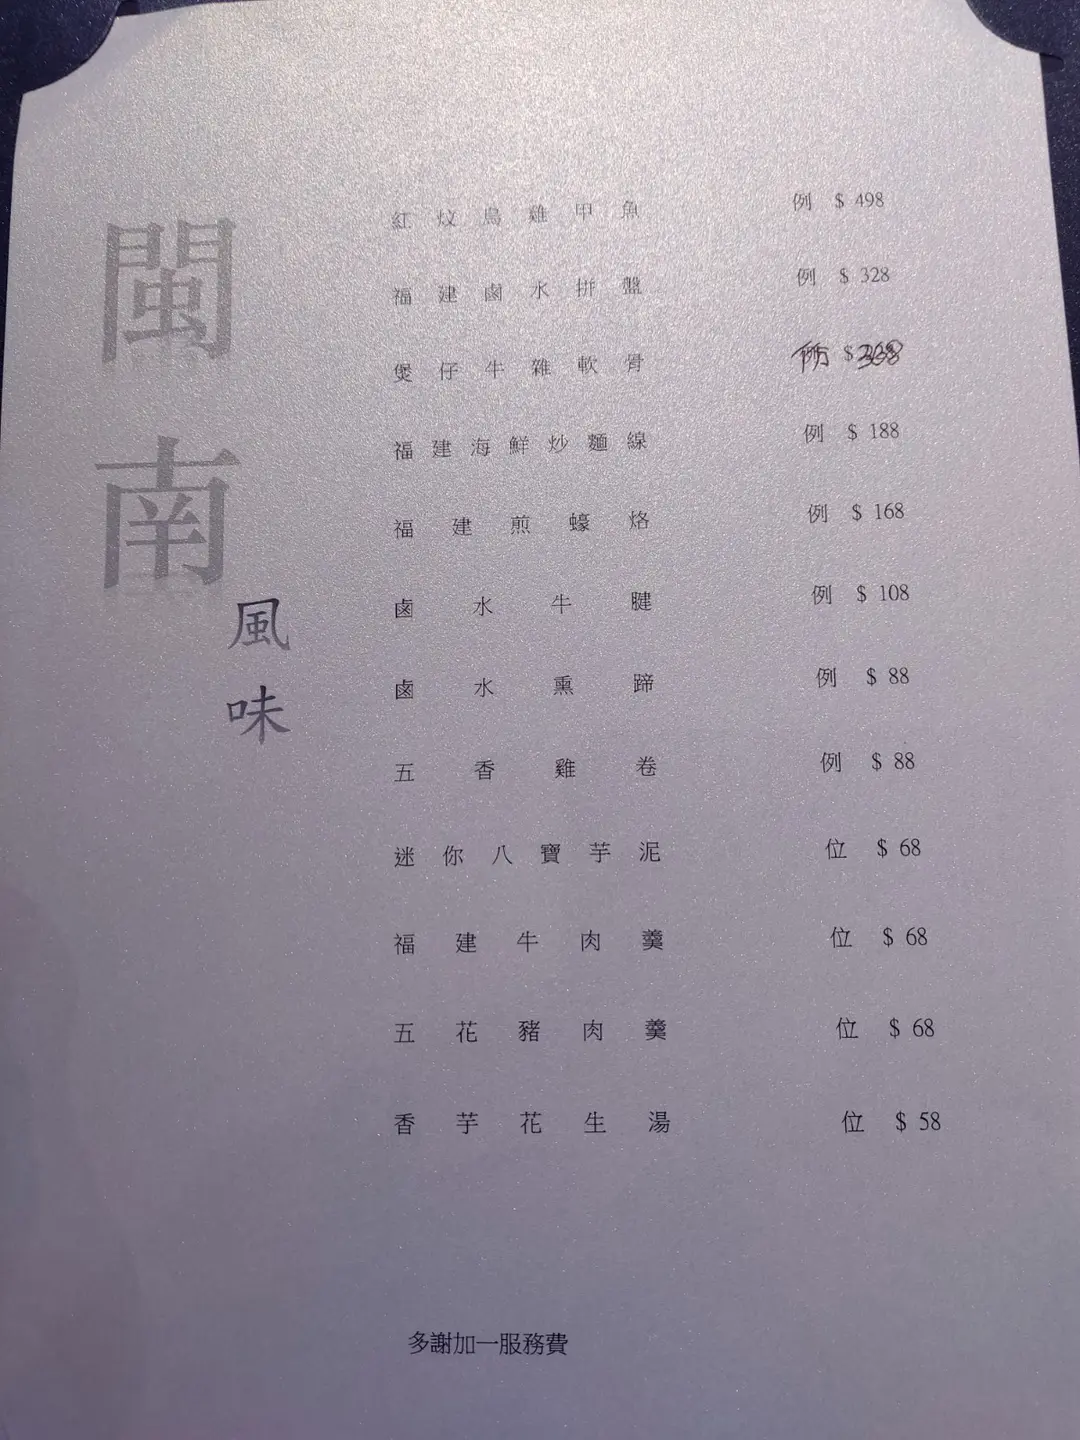 閩南
風味
紅炆烏雞甲魚 例 $ 498
福建鹵水拼盤 例 $ 328
煲仔牛雜軟骨 $
福建海鮮炒麵線 例 $ 188
福建煎蠔烙 例 $ 168
鹵水牛腱 例 $ 108
鹵水熏蹄 例 $ 88
五香雞卷 例 $ 88
迷你八寶芋泥 位 $ 68
福建牛肉羹 位 $ 68
五花豬肉羹 位 $ 68
香芋花生湯 位 $ 58
多謝加一服務費